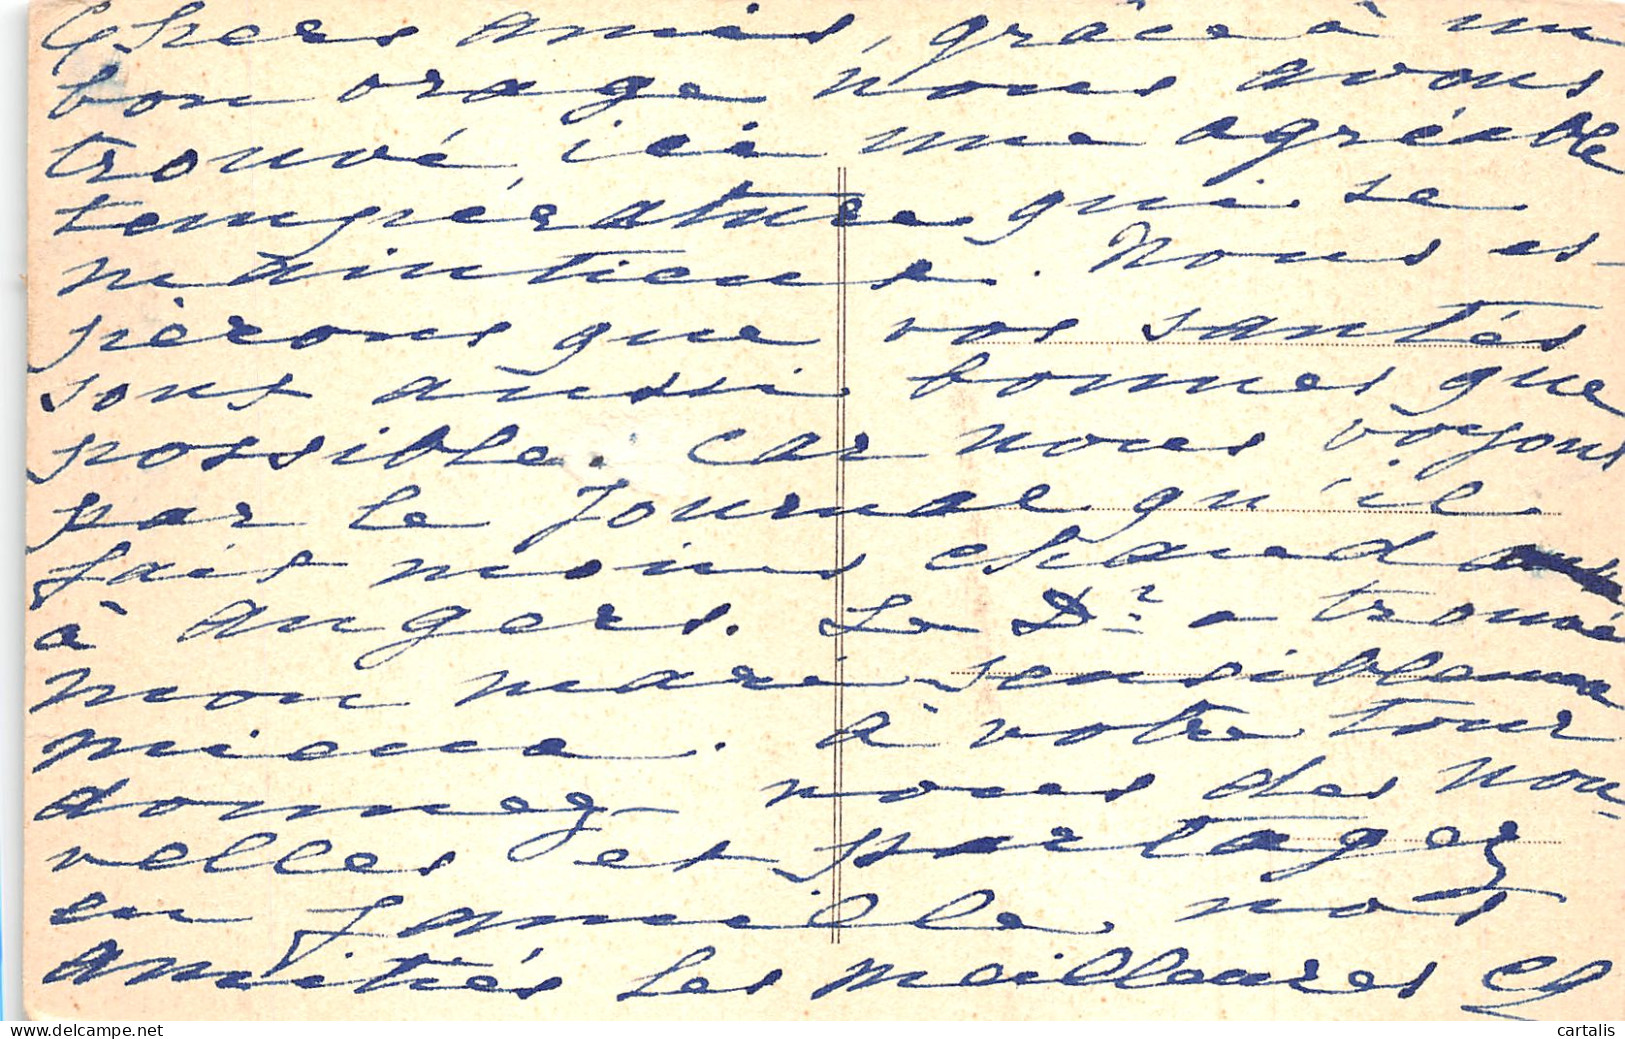 Chers amis, grâce à un
bon orage nous avons
trouvé ici une agréable
température qui se
maintient. Nous es-
pèrons que vos santés
sont aussi bonnes que
possible. Car nous voyons
par le journal qu'il
fait moins chaud
à Angers. Le Dr a trouvé
mon mari sensiblement
mieux. à votre tour
donnez nous des nou-
velles et partagez
en famille nos
amitiés les meilleures
www.delcampe.net
cartalis